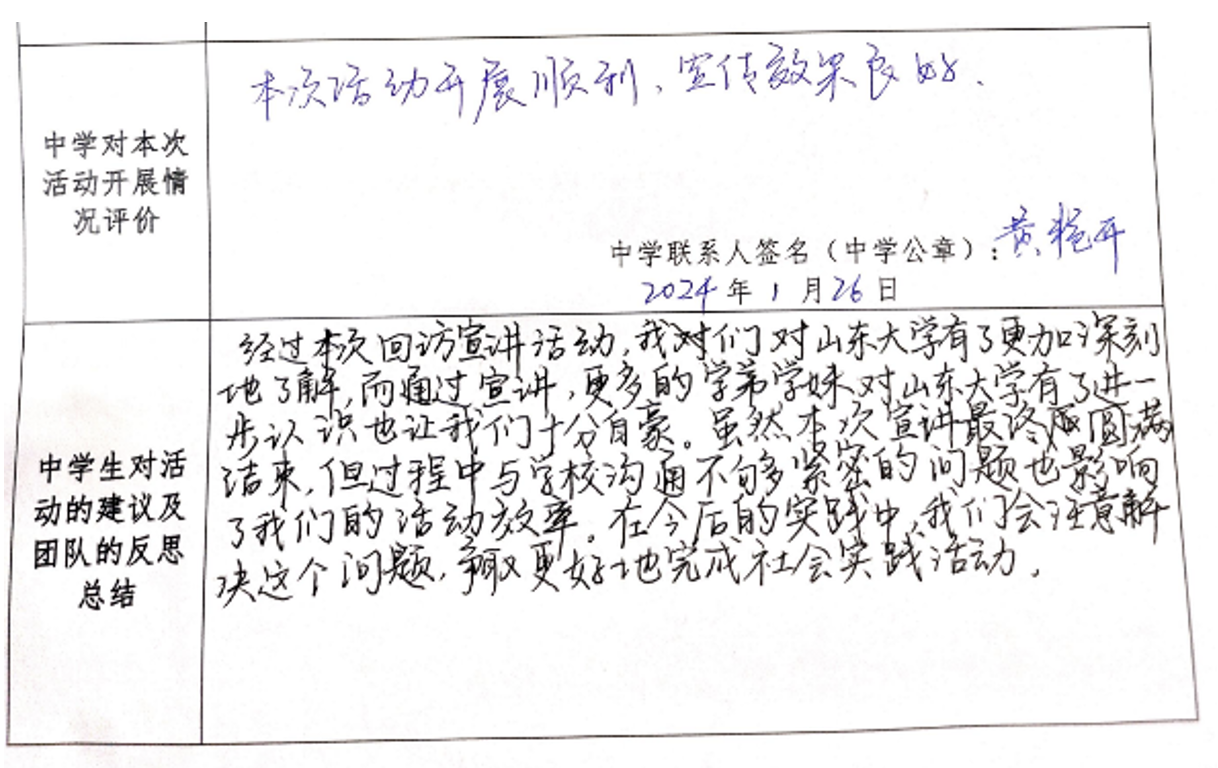 中学对本次
活动开展情
况评价
本次活动开展顺利、宣传效果良好.
中学联系人签名（中学公章）：黄艳平
2024年1月26日
中学生对活
动的建议及
团队的反思
总结
经过本次回访宣讲活动,我对们对山东大学有了更加深刻
地了解,而通过宣讲,更多的学弟学妹对山东大学有了进一
步认识也让我们十分自豪。虽然本次宣讲最终圆满
结束,但过程中与学校沟通不够紧密的问题也影响
了我们的活动效率。在今后的实践中,我们会注意解
决这个问题,争取更好地完成社会实践活动.